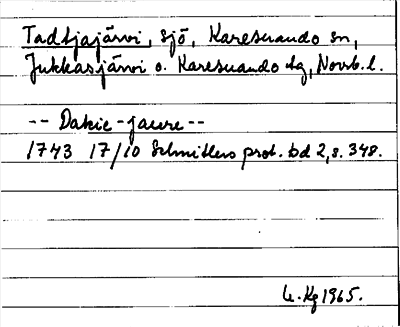 Tadtjajärvi, sjö, Karesuando sn,
Jukkasjärvi o. Karesuando tg, Norrb. l.
-- Dakie-jaure --
1743 17/10 Schnitlers prot. bd 2, s. 348.
Kg 1965.